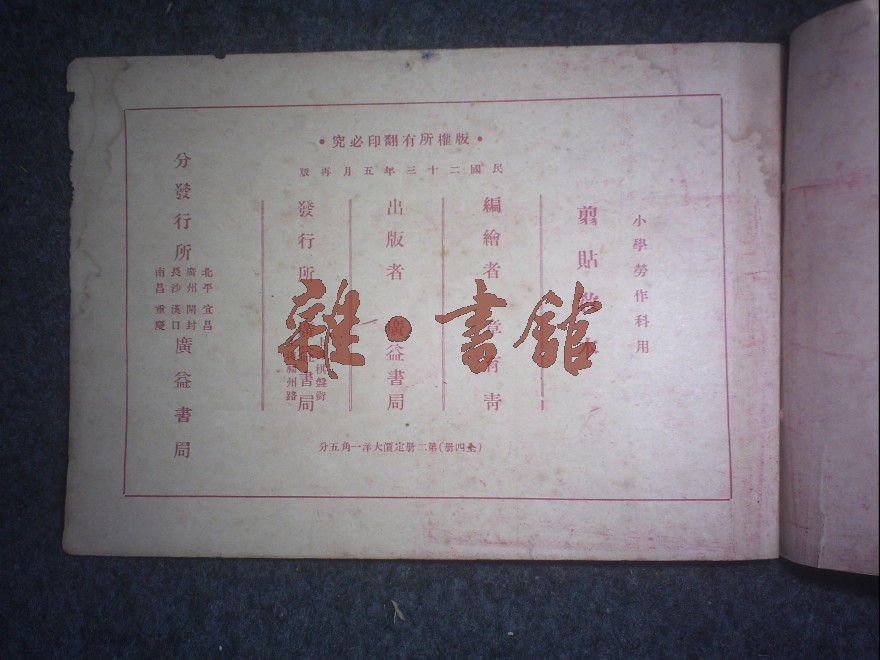 •版權所有翻印必究•
民國二十三年五月再版
小學勞作科用
剪貼
編繪者 章育青
出版者 廣益書局
發行所 廣益書局
棋盤街
福州路
分發行所
北平 宜昌
廣州 開封
長沙 漢口
南昌 重慶
廣益書局
(全四册)第二册定價大洋一角五分
雜·書館